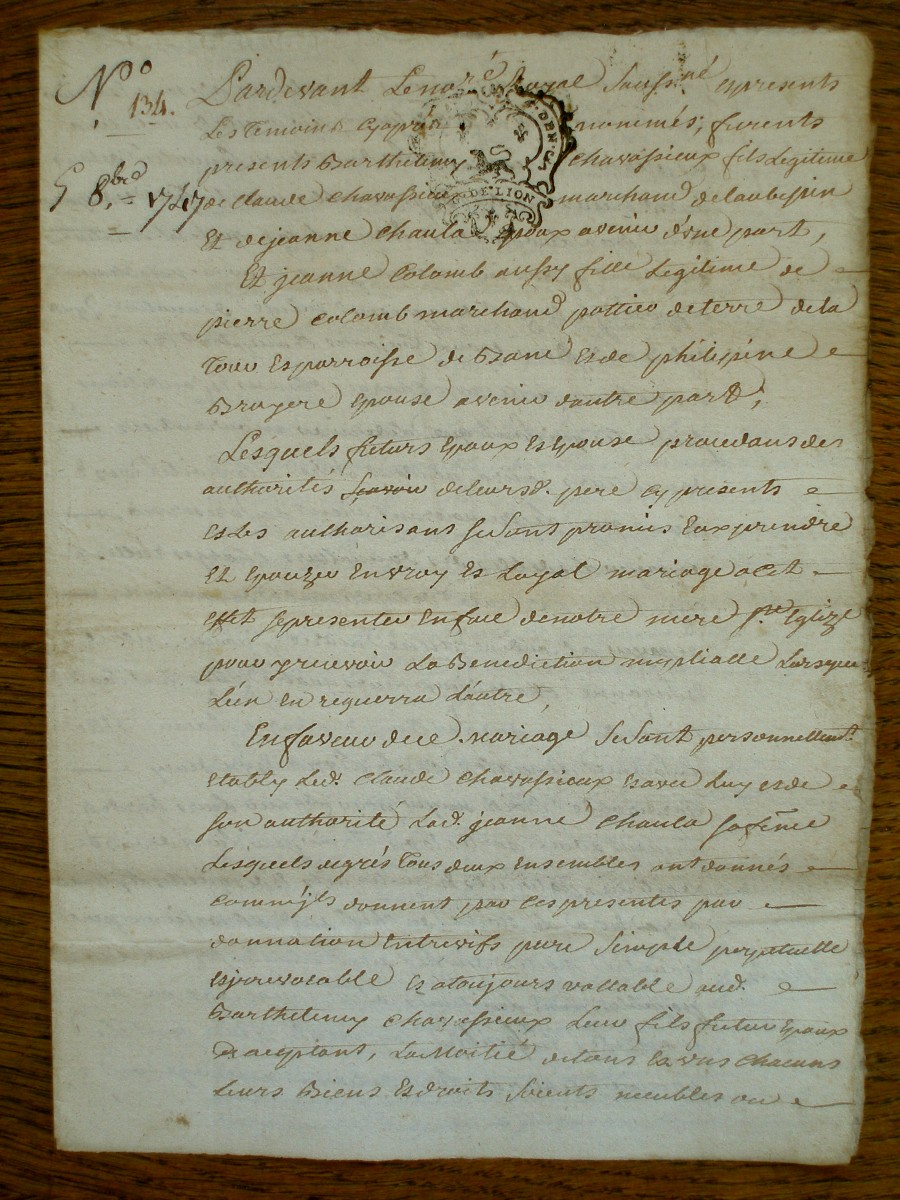 N.o 134.
5 8bre 1747
Pardevant Le no.re Royal Souss.né Et presents
Les Temoins Cy apres nommés; furents
presents Barthelemy Chavassieux fils Legitime
de Claude Chavassieux marchand de laubepin
Et de jeanne Chaula Epoux avenir d'une part,
Et jeanne Colomb aussy fille Legitime de
pierre Colomb marchand pottier de terre de la
Tour Et parroisse de Bane Et de philipine
Bruyere Epouse avenir dautre part;
Lesquels futurs Epoux Et Epouse procedans des
authorités Scavoir de leurs d. pere Cy presents
Et Les authorisans se sont promis Eux prendre
Et Epouzer En vray Et Loyal mariage a Cet
Effet se presenter En face de notre mere s.te Eglize
pour y recevoir La Benediction nuptialle Lorsque
L'un En requerra L'autre,
En faveur de ce mariage se sont personnellem.t
Etably Led. Claude Chavassieux Et avec Luy Et de
son authorité Lad. jeanne Chaula sa feme
Lesquels de grés tous deux Ensembles ont donnés
Comm'ils donnent par Ces presentes par
donnation Entrevifs pure Simple perpetuelle
Et irrevocable Et a toujours vallable aud.
Barthelemy Chavassieux Leur fils futur Epoux
acceptant, La Moitié de tous Et uns Chacuns
Leurs Biens Et droits Soients meubles ou
DE LION